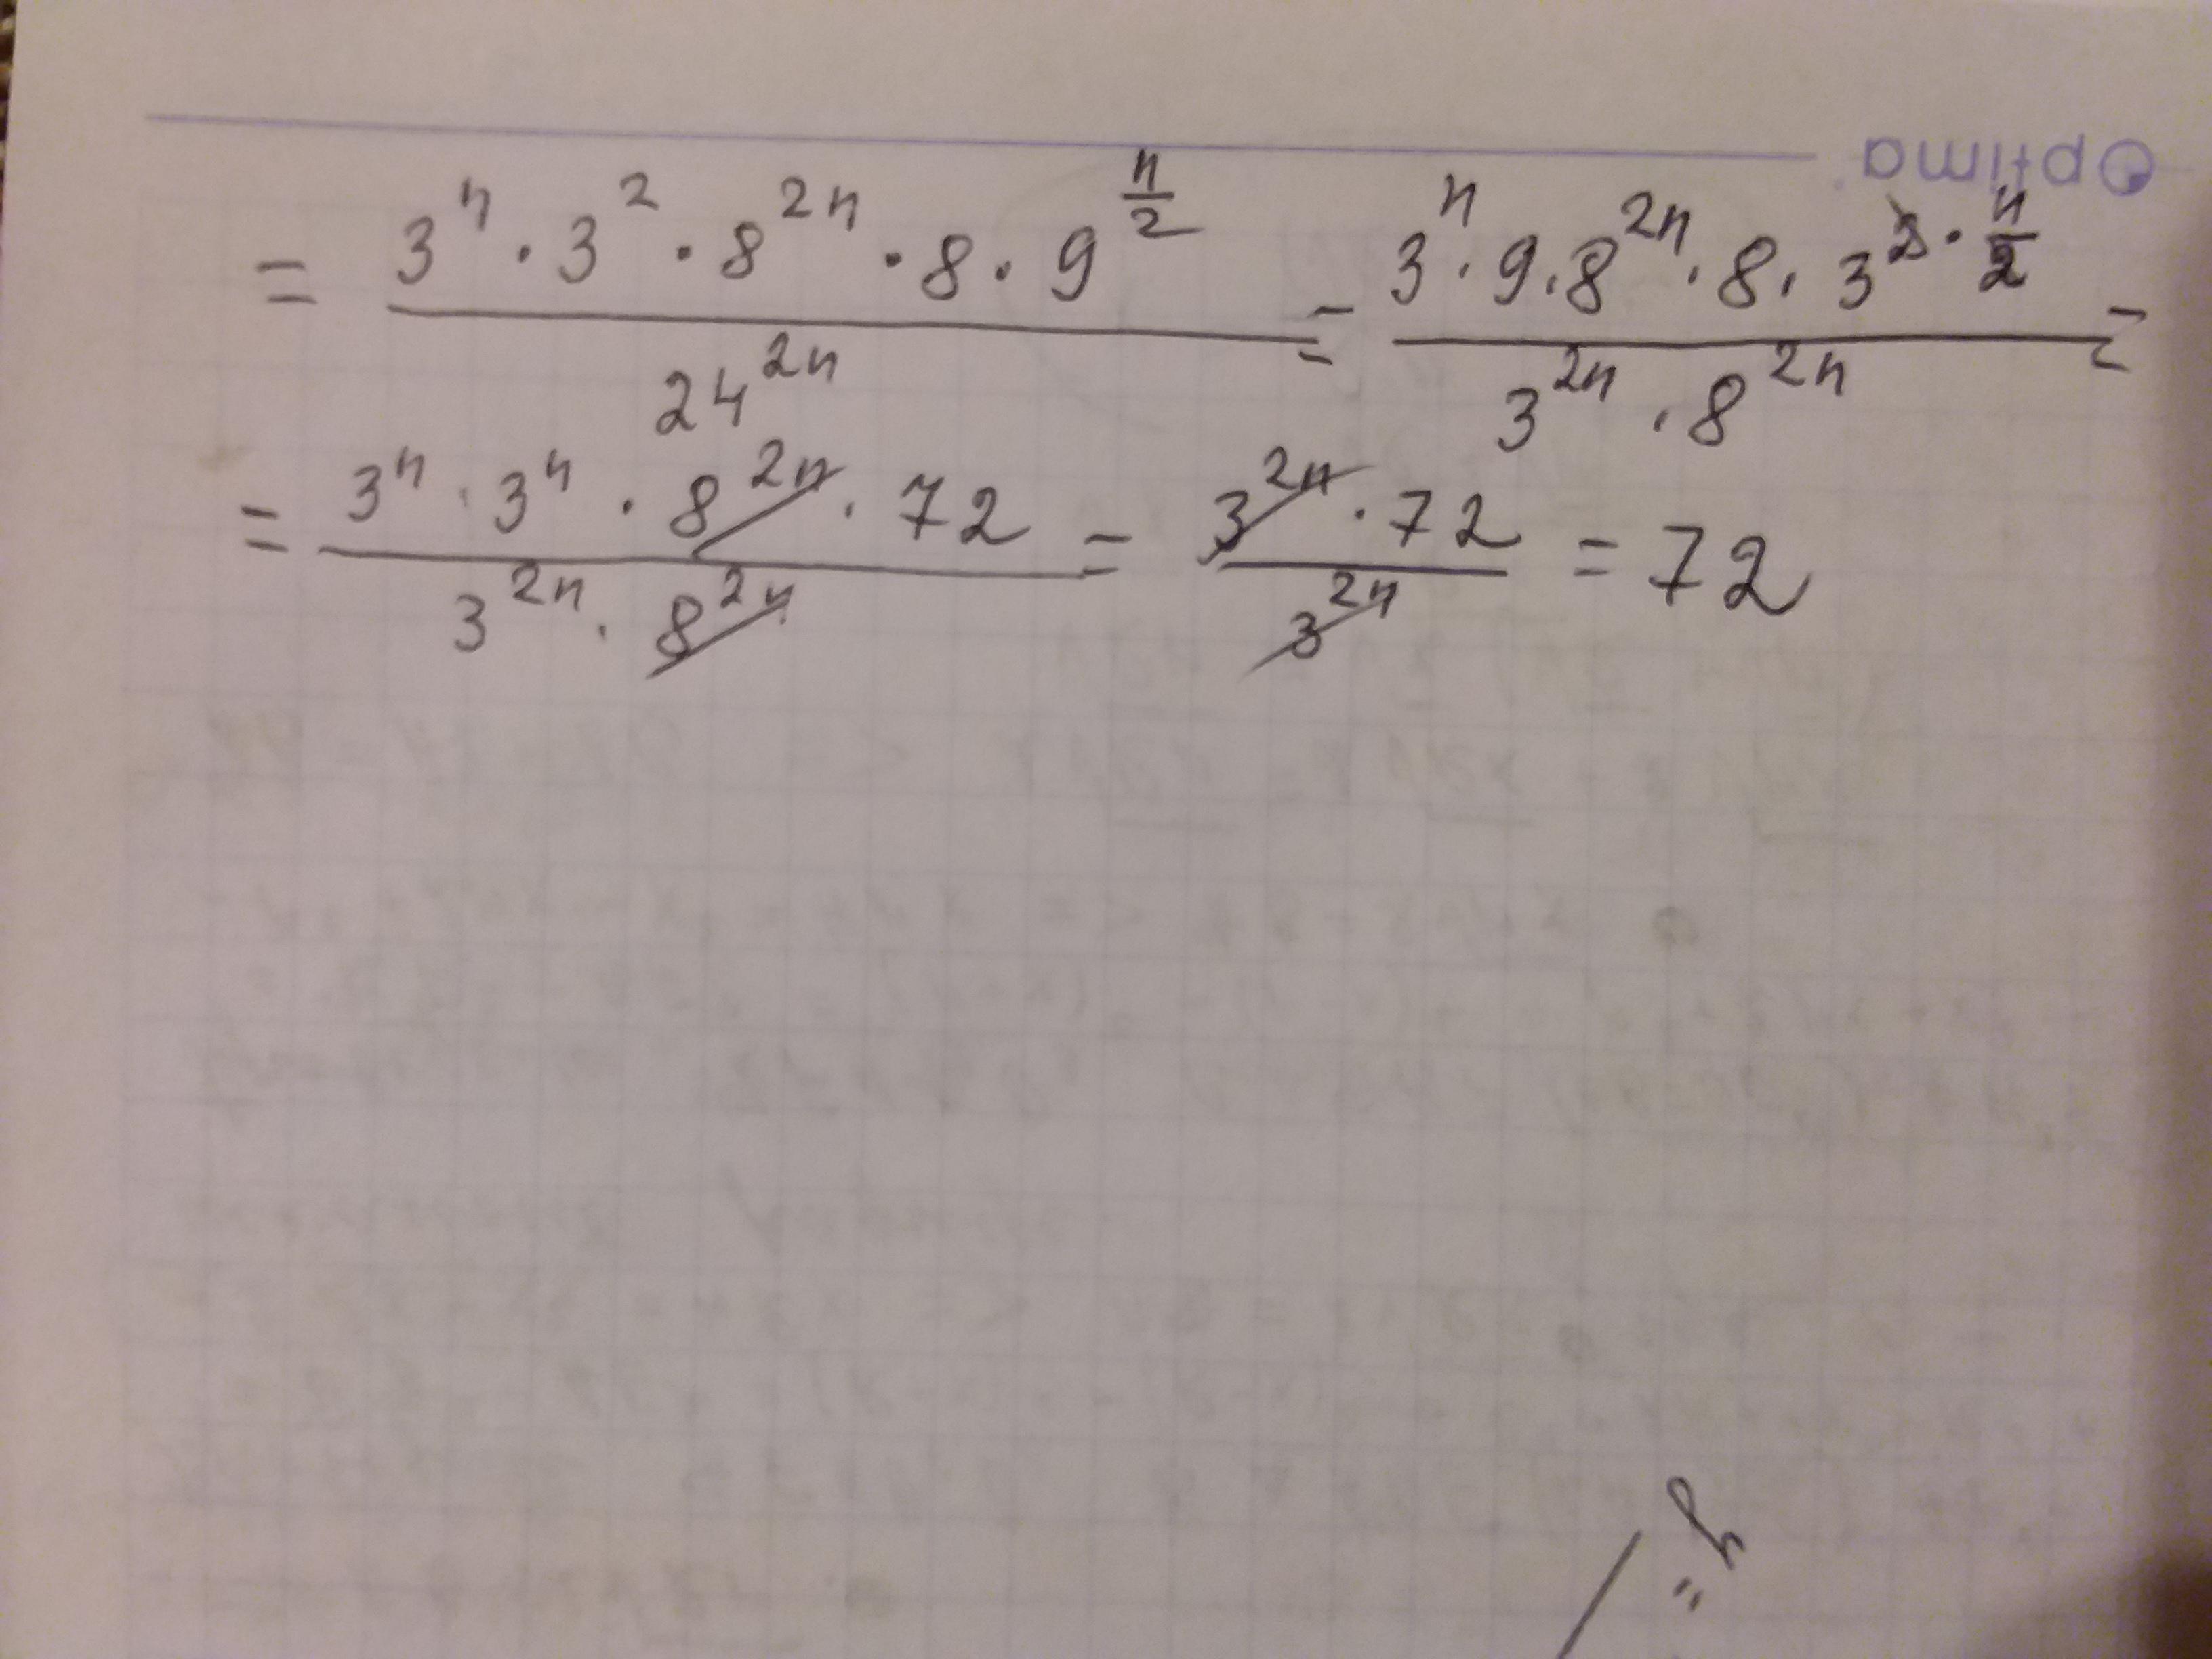 Optima
= \frac{3^n · 3^2 · 8^{2n} · 8 · 9^{\frac{n}{2}}}{24^{2n}} = \frac{3^n · 9 · 8^{2n} · 8 · 3^{2 · \frac{n}{2}}}{3^{2n} · 8^{2n}} =
= \frac{3^n · 3^n · 8^{2n} · 72}{3^{2n} · 8^{2n}} = \frac{3^{2n} · 72}{3^{2n}} = 72